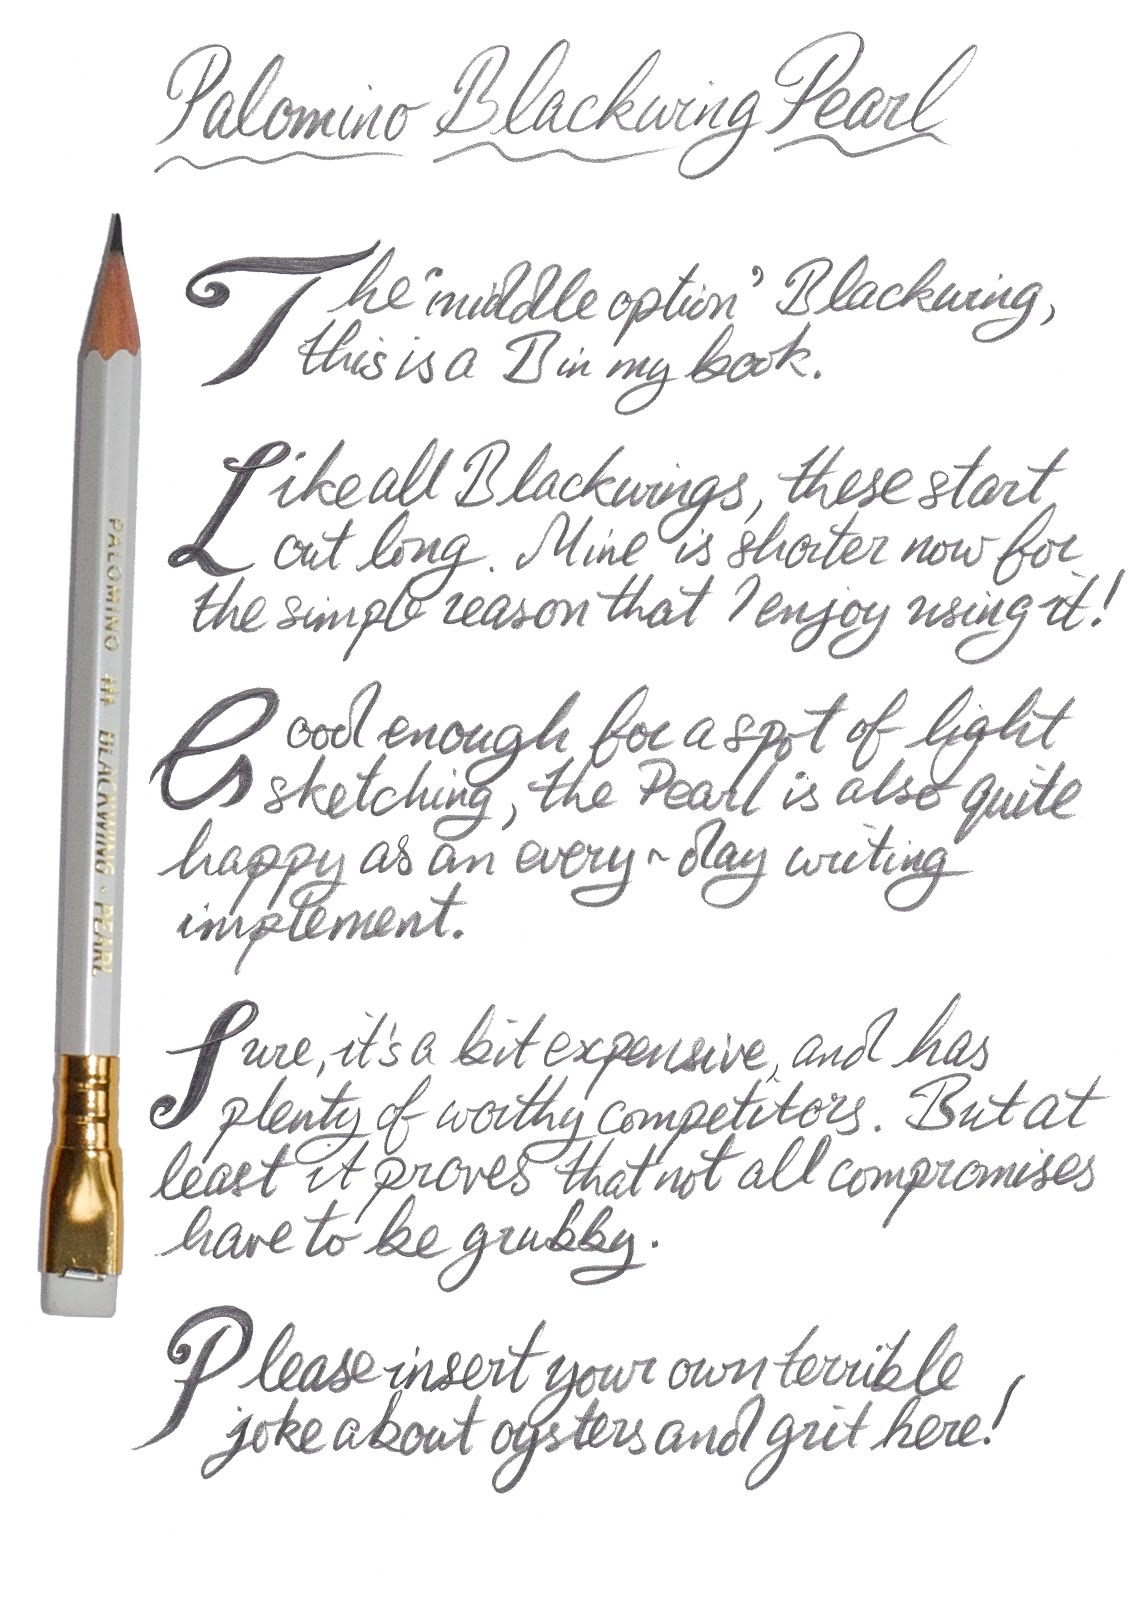 Palomino Blackwing Pearl
The 'middle option' Blackwing,
this is a B in my book.
Like all Blackwings, these start
out long. Mine is shorter now for
the simple reason that I enjoy using it!
Good enough for a spot of light
sketching, the Pearl is also quite
happy as an every-day writing
implement.
Sure, it's a bit expensive, and has
plenty of worthy competitors. But at
least it proves that not all compromises
have to be grubby.
Please insert your own terrible
joke about oysters and grit here!
PALOMINO BLACKWING · PEARL